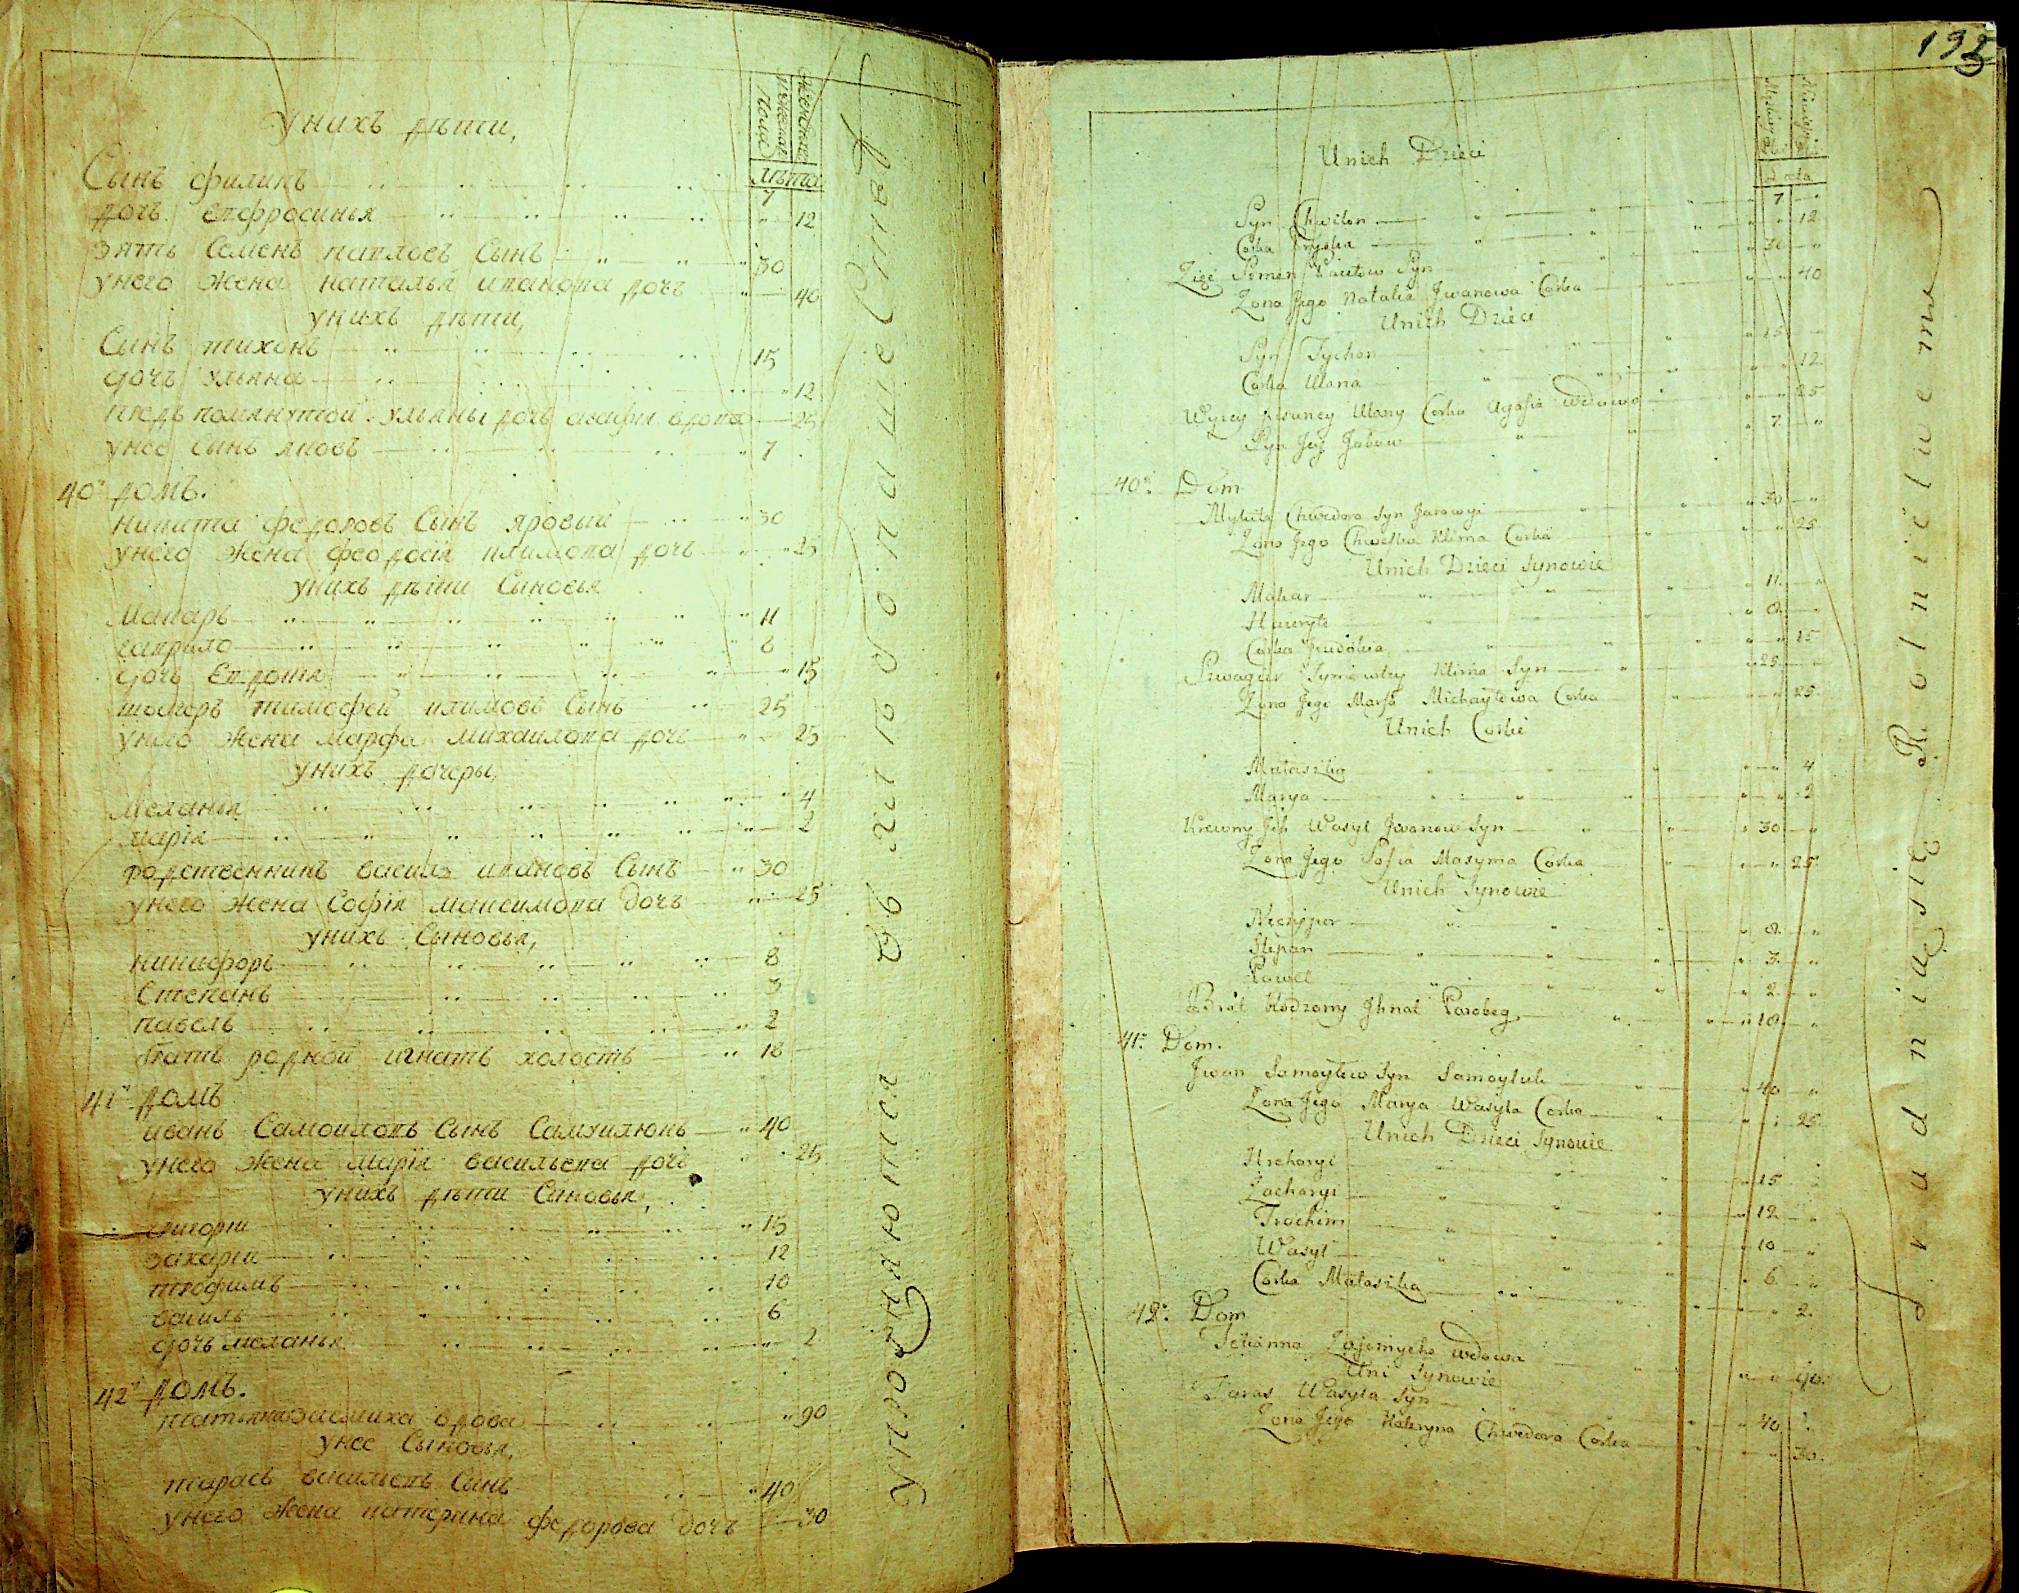 Женска
Мужеска
Пола
Лѣта
унихъ дѣти,
Сынъ филипъ 7
дочь епфросинья 12
зять Семенъ павловъ Сынъ 30
унего жена наталья иванова дочь 40
унихъ дѣти,
Сынъ тихонъ 15
дочь ульяна 12
помянутой ульяны дочь вдова 25
унее Сынъ яковъ 7
40й домъ.
никита федоровъ Сынъ яровый 30
унего жена феодосія климова дочь 25
унихъ дѣти Сыновья
макаръ 11
гаврило 8
дочь Евдокія 15
шваеръ тимофей климовъ Сынъ 25
унего жена марфа михаилова дочь 25
унихъ дочеры,
меланья 4
марія 2
родственникъ василь ивановъ Сынъ 30
унего жена Софія максимова дочь 25
унихъ Сыновья,
никифоръ 8
Степанъ 3
павелъ 2
братъ родной игнатъ холостъ 18
41й домъ
иванъ Самоиловъ Сынъ 40
унего жена марія васильева дочь 25
унихъ дѣти Синовья,
григорій 15
захарій 12
трофимъ 10
василь 6
дочь меланья 2
42й домъ.
татьяна заемиха вдова 90
унее Сыновья,
тарасъ васильевъ Сынъ 40
унего жена катерина федорова дочь 30
193
Męskiey Płci
Lata
Unich Dzieci
Syn Chwilon 7
Corka Pryska 12
Zięć Semen Pawłow Syn 30
Zona Jego Natalia Jwanowa Corka 40
Unich Dzieci
Syn Tychon 15
Corka Ulana 12
Wyrzey pisaney Ulany Corka Agafia wdowa 25
Syn Jey Jakow 7
40. Dom
Mykita Chwedora Syn Jarowyi 30
Zona Jego Chweska Klima Corka 25
Unich Dzieci Synowie
Makar 11
Hawryło 8
Corka Jewdokia 15
Szwagier Tymowtey Klima Syn 25
Zona Jego Marfa Michayłowa Corka 25
Unich Corki
Małaszka 4
Marya 2
Krewny Jch Wasyl Jwanow Syn 30
Zona Jego Sofia Maxyma Corka 25
Unich Synowie
Neczypor 8
Stepan 3
Paweł 2
Brat Rodzony Jhnat Parobeg 18
41. Dom.
Jwan Samoyłow Syn Samoyluk 40
Zona Jego Marya Wasyla Corka 25
Unich Dzieci Synowie
Hrehoryi 15
Zacharyi 12
Trochim 10
Wasyl 6
Corka Małaszka 2
42. Dom
Tetianna Zajemycha wdowa 90
Uni Synowie
Taras Wasyla Syn 40
Zona Jego Kateryna Chwedora Corka 30
Trudnią się Rolnictwem